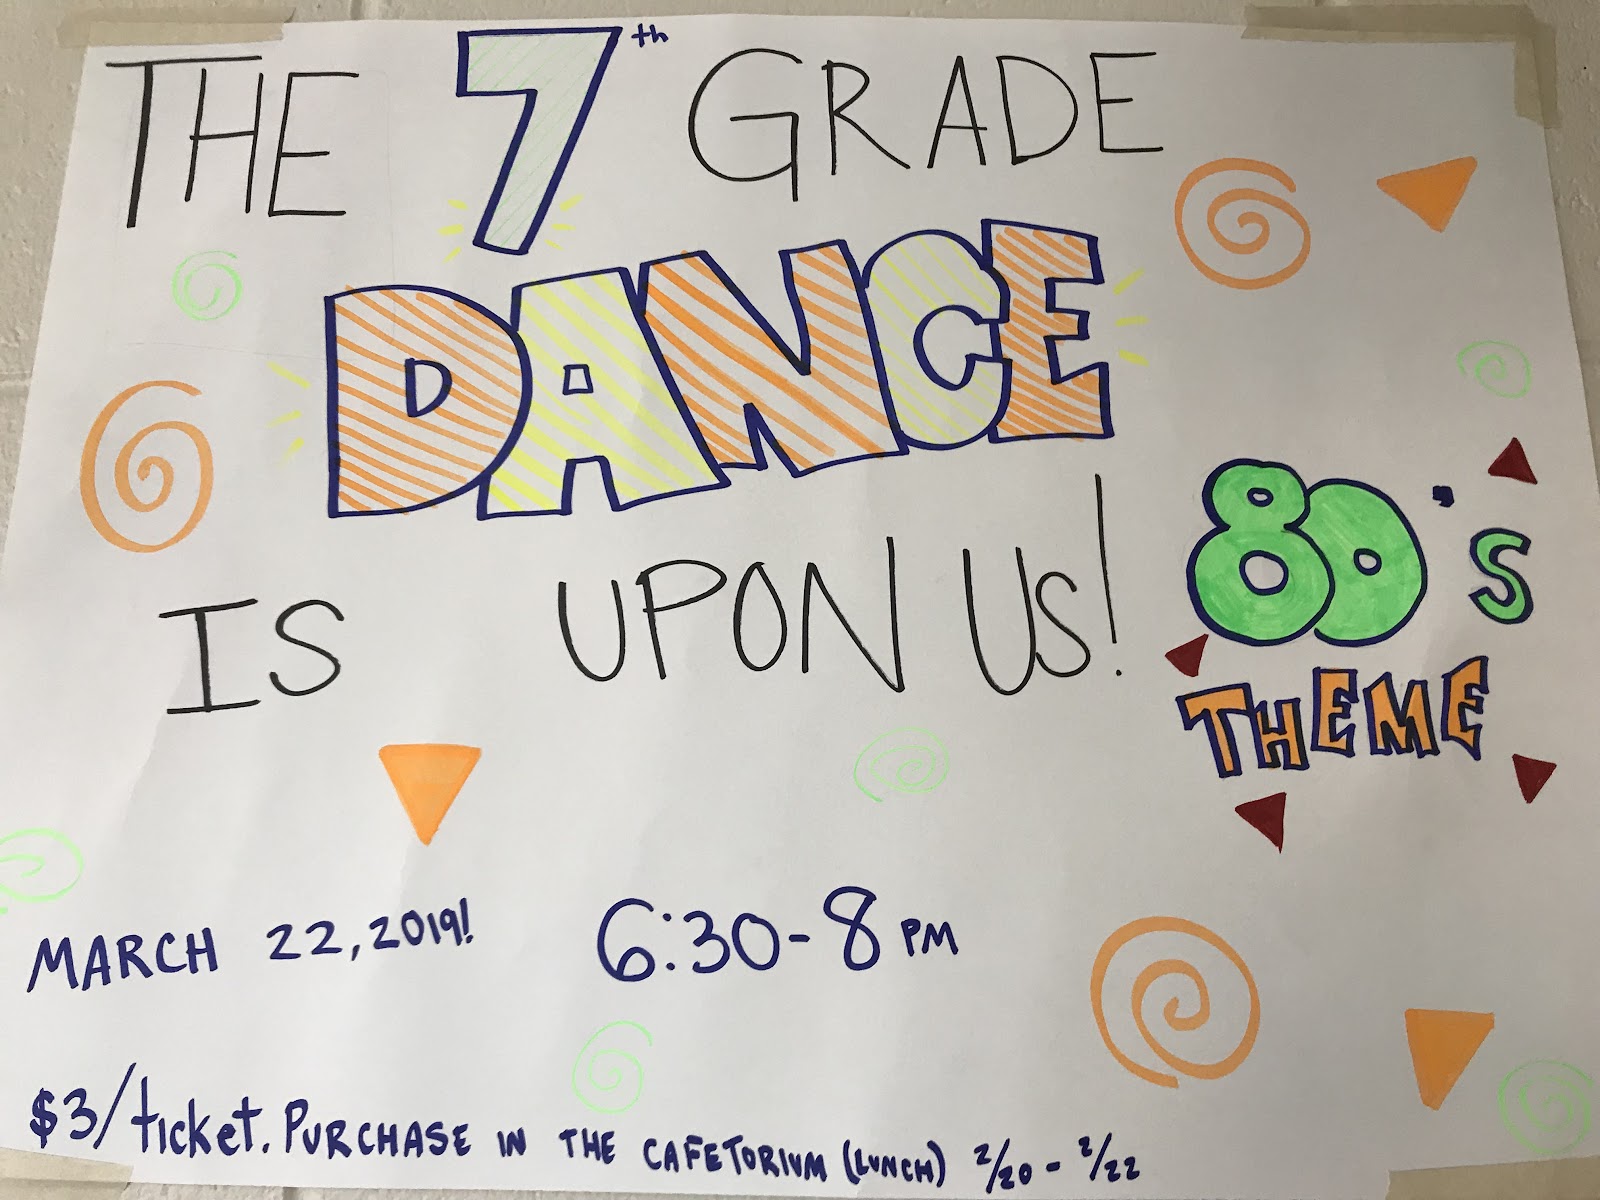 THE 7th GRADE
DANCE
IS UPON US!
80's
THEME
MARCH 22, 2019! 6:30-8 PM
$3/ticket. PURCHASE IN THE CAFETORIUM (LUNCH) 2/20 - 2/22